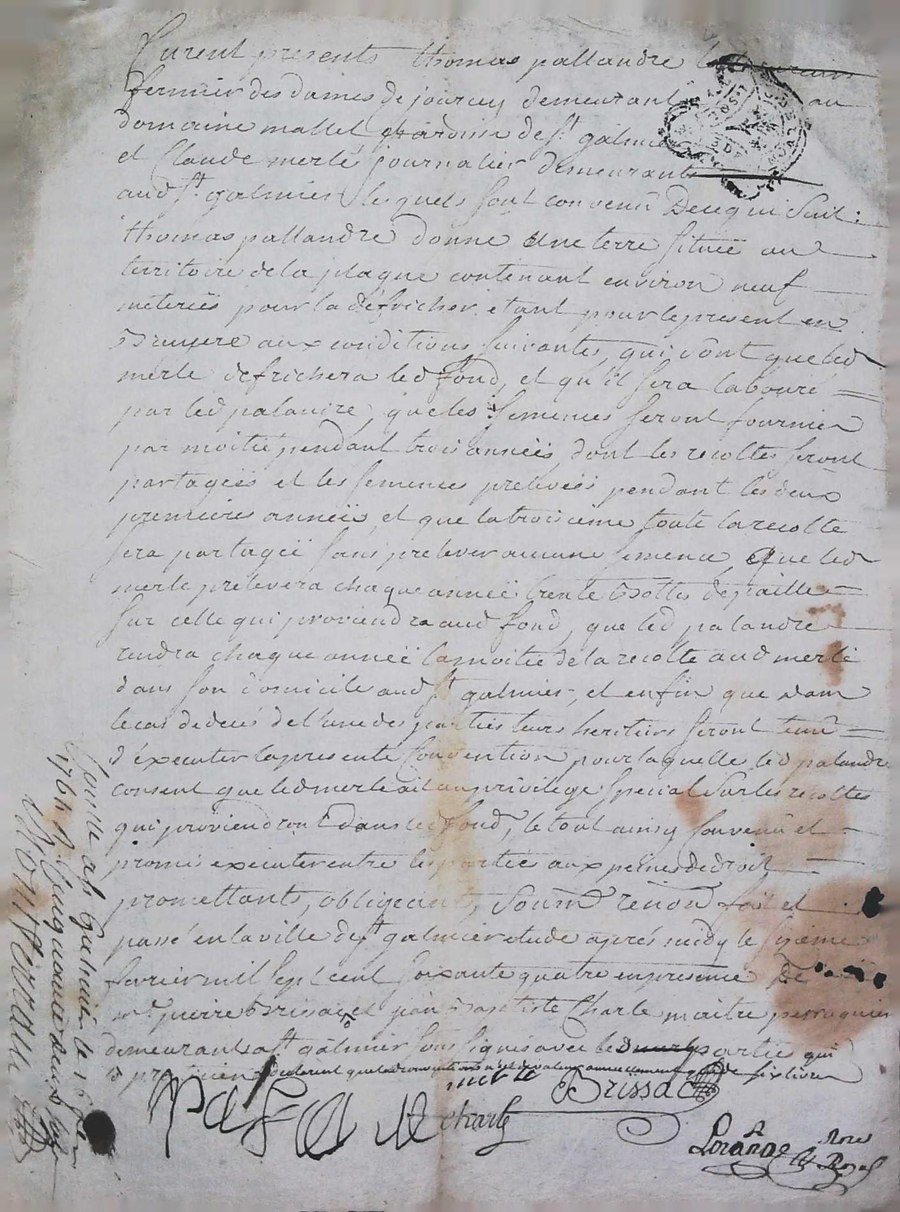 furent presents thomas pallandre
fermier des dames de jourcey demeurant au
domaine mallet paroisse de st galmier
et Claude merle journalier demeurant
aud st galmier lesquels sont convenu De ce qui Suit
thomas pallandre donne une terre située au
territoire de la plagne contenant environ neuf
méteriés pour la défricher etant pour le present en
Bruyere aux conditions Suivantes, qui sont que led
merle defrichera led fond, et qu'il sera labouré
par led palandre, que les Semences Seront fournies
par moitié pendant trois années dont les recoltes seront
partagées et les semences prelevées pendant les deux
premieres années, et que la troisieme toute la recolte
sera partagée sans prelever aucune semence, Que led
merle prelevera chaque année trente Bottes de paille
sur celle qui proviendra aud fond, que led palandre
rendra chaque année la moitié de la recolte aud merle
dans son domicile aud st galmier, et enfin que dans
le cas de decés de l'une des parties leurs heritiers seront tenus
d'éxecuter la presente Convention pour laquelle led palandre
consent que led merle ait un privilege special Sur les recoltes
qui proviendront Dans led fond, le tout ainsy Convenu et
promis executer entre les partie aux peines de droit
promettants, obligeant, Soum renon fait et
passé en la ville de st galmier etude aprés midy le sixieme
fevrier mil sept cent soixante quatre en presence De
mr pierre Brissac et jean Baptiste Charle maitre perruquier
demeurants a st galmier Sous signés avec le partie qui
declarent que la de six livres
merle
Brissac
charle
Lorange
Nore
Royal
Controllé a st galmier le
1764